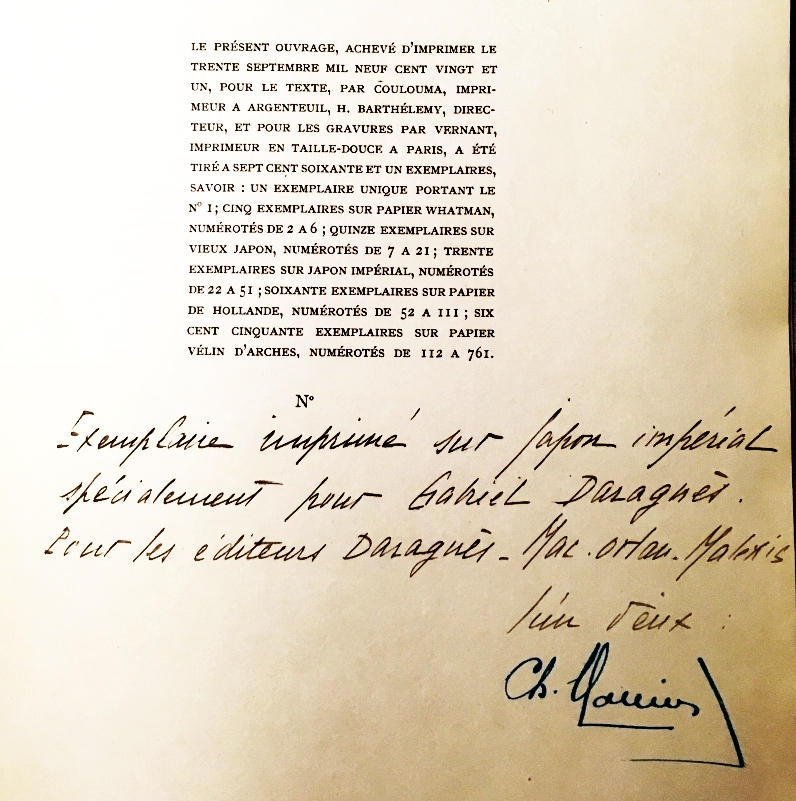 LE PRÉSENT OUVRAGE, ACHEVÉ D'IMPRIMER LE
TRENTE SEPTEMBRE MIL NEUF CENT VINGT ET
UN, POUR LE TEXTE, PAR COULOUMA, IMPRI-
MEUR A ARGENTEUIL, H. BARTHÉLEMY, DIREC-
TEUR, ET POUR LES GRAVURES PAR VERNANT,
IMPRIMEUR EN TAILLE-DOUCE A PARIS, A ÉTÉ
TIRÉ A SEPT CENT SOIXANTE ET UN EXEMPLAIRES,
SAVOIR : UN EXEMPLAIRE UNIQUE PORTANT LE
N° 1 ; CINQ EXEMPLAIRES SUR PAPIER WHATMAN,
NUMÉROTÉS DE 2 A 6 ; QUINZE EXEMPLAIRES SUR
VIEUX JAPON, NUMÉROTÉS DE 7 A 21 ; TRENTE
EXEMPLAIRES SUR JAPON IMPÉRIAL, NUMÉROTÉS
DE 22 A 51 ; SOIXANTE EXEMPLAIRES SUR PAPIER
DE HOLLANDE, NUMÉROTÉS DE 52 A 111 ; SIX
CENT CINQUANTE EXEMPLAIRES SUR PAPIER
VÉLIN D'ARCHES, NUMÉROTÉS DE 112 A 761.
N°
Exemplaire imprimé sur Japon impérial
spécialement pour Gabriel Daragnès.
Pour les éditeurs Daragnès - Mac. orlan - Malexis
l'un d'eux :
Ch.